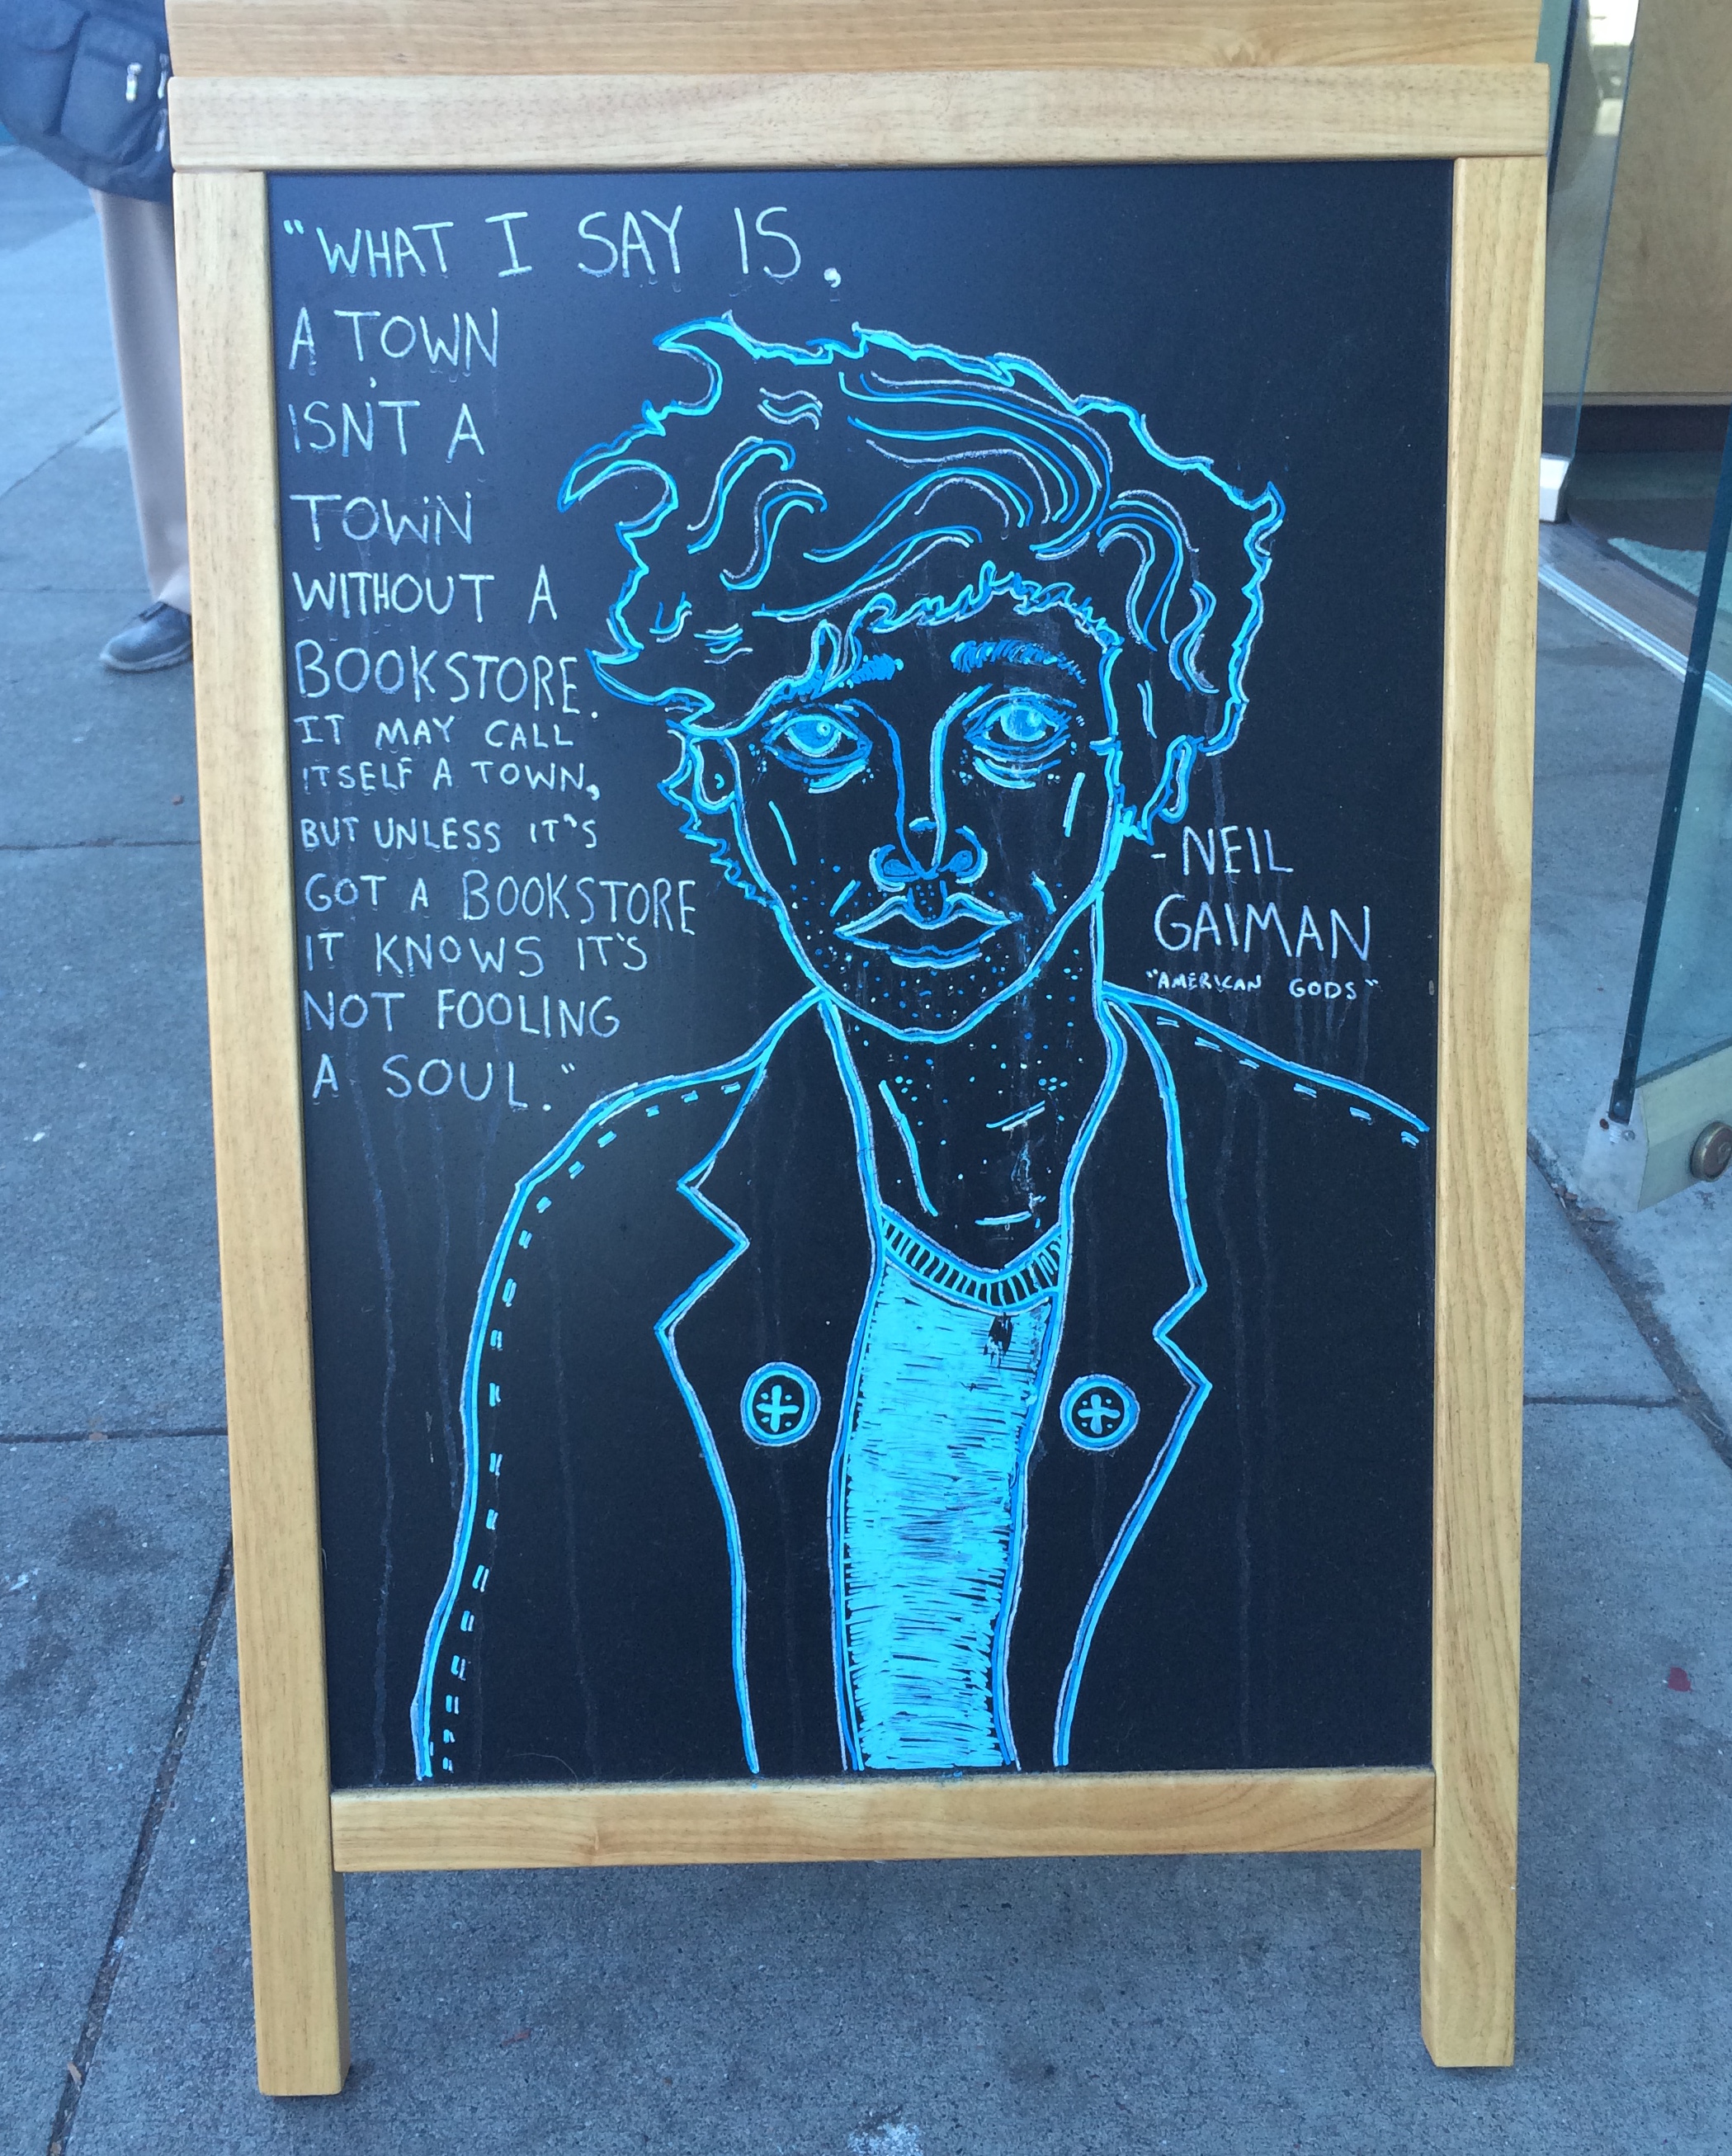 "WHAT I SAY IS,
A TOWN
ISN'T A
TOWN
WITHOUT A
BOOKSTORE.
IT MAY CALL
ITSELF A TOWN,
BUT UNLESS IT'S
GOT A BOOKSTORE
IT KNOWS IT'S
NOT FOOLING
A SOUL."
-NEIL
GAIMAN
"AMERICAN GODS"